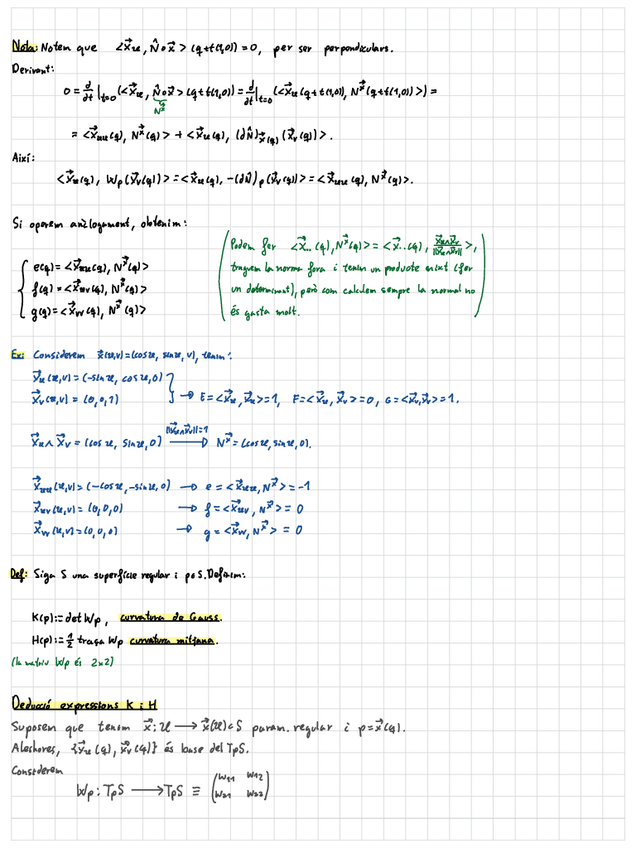 Nota: Notem que <x⃗u, N̂∘x⃗>(q+t(1,0))=0, per ser perpendiculars.
Derivant:
0 = d/dt|t=0 (<x⃗u, N̂∘x⃗>(q+t(1,0))) = d/dt|t=0 (<x⃗u(q+t(1,0)), N^x⃗(q+t(1,0))>) =
N^x⃗
= <x⃗uu(q), N^x⃗(q)> + <x⃗u(q), (dN̂)x⃗(q)(x⃗v(q))>.
Així:
<x⃗u(q), Wp(x⃗v(q))> = <x⃗u(q), -(dN̂)p(x⃗v(q))> = <x⃗uu(q), N^x⃗(q)>.
Si operem anàlogament, obtenim:
e(q) = <x⃗uu(q), N^x⃗(q)>
f(q) = <x⃗uv(q), N^x⃗(q)>
g(q) = <x⃗vv(q), N^x⃗(q)>
Podem fer <x⃗..(q), N^x⃗(q)> = <x⃗..(q), x⃗u∧x⃗v/||x⃗u∧x⃗v||>,
traguem la norma fora i tenim un producte mixt (fer
un determinant), però com calculem sempre la normal no
és gasta molt.
Ex: Considerem x⃗(u,v)=(cos u, sin u, v), tenim:
x⃗u(u,v) = (-sin u, cos u, 0)
x⃗v(u,v) = (0,0,1)
→ E=<x⃗u, x⃗u>=1, F=<x⃗u, x⃗v>=0, G=<x⃗v, x⃗v>=1.
||x⃗u∧x⃗v||=1
x⃗u∧x⃗v = (cos u, sin u, 0) → N^x⃗ = (cos u, sin u, 0).
x⃗uu(u,v) = (-cos u, -sin u, 0) → e = <x⃗uu, N^x⃗> = -1
x⃗uv(u,v) = (0,0,0) → f = <x⃗uv, N^x⃗> = 0
x⃗vv(u,v) = (0,0,0) → g = <x⃗vv, N^x⃗> = 0
Def: Siga S una superfície regular i p∈S. Definim:
K(p) := det Wp, curvatura de Gauss.
H(p) := 1/2 traça Wp curvatura mitjana.
(la matriu Wp és 2x2)
Deducció expressions K i H
Suposem que tenim x⃗: U → x⃗(U)⊂S param. regular i p=x⃗(q).
Aleshores, {x⃗u(q), x⃗v(q)} és base del TpS.
Considerem
Wp: TpS → TpS ≡ (w11 w12
w21 w22)